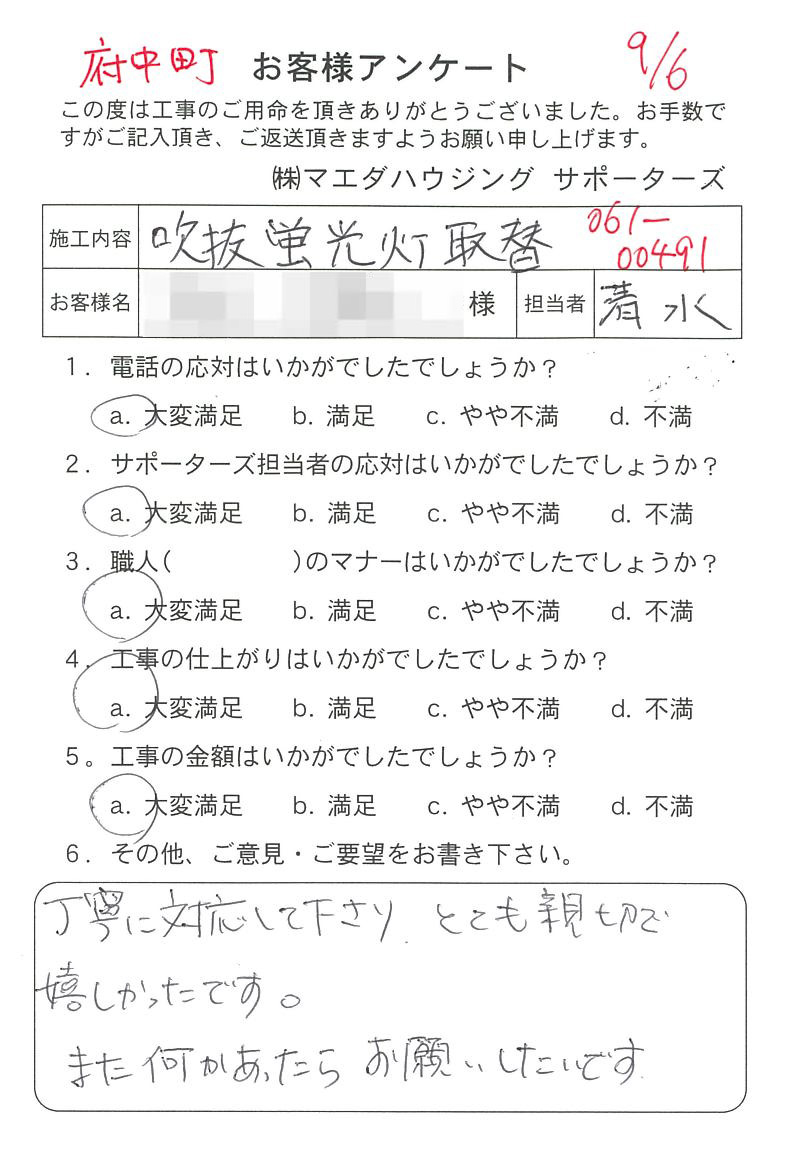 府中町 お客様アンケート 9/6
この度は工事のご用命を頂きありがとうございました。お手数で
すがご記入頂き、ご返送頂きますようお願い申し上げます。
㈱マエダハウジング サポーターズ
施工内容 吹抜蛍光灯取替 061-00491
お客様名 様 担当者 清水
1. 電話の応対はいかがでしたでしょうか？
a. 大変満足 b. 満足 c. やや不満 d. 不満
2. サポーターズ担当者の応対はいかがでしたでしょうか？
a. 大変満足 b. 満足 c. やや不満 d. 不満
3. 職人( )のマナーはいかがでしたでしょうか？
a. 大変満足 b. 満足 c. やや不満 d. 不満
4. 工事の仕上がりはいかがでしたでしょうか？
a. 大変満足 b. 満足 c. やや不満 d. 不満
5。工事の金額はいかがでしたでしょうか？
a. 大変満足 b. 満足 c. やや不満 d. 不満
6. その他、ご意見・ご要望をお書き下さい。
丁寧に対応して下さり、とても親切で
嬉しかったです。
また何かあったらお願いしたいです